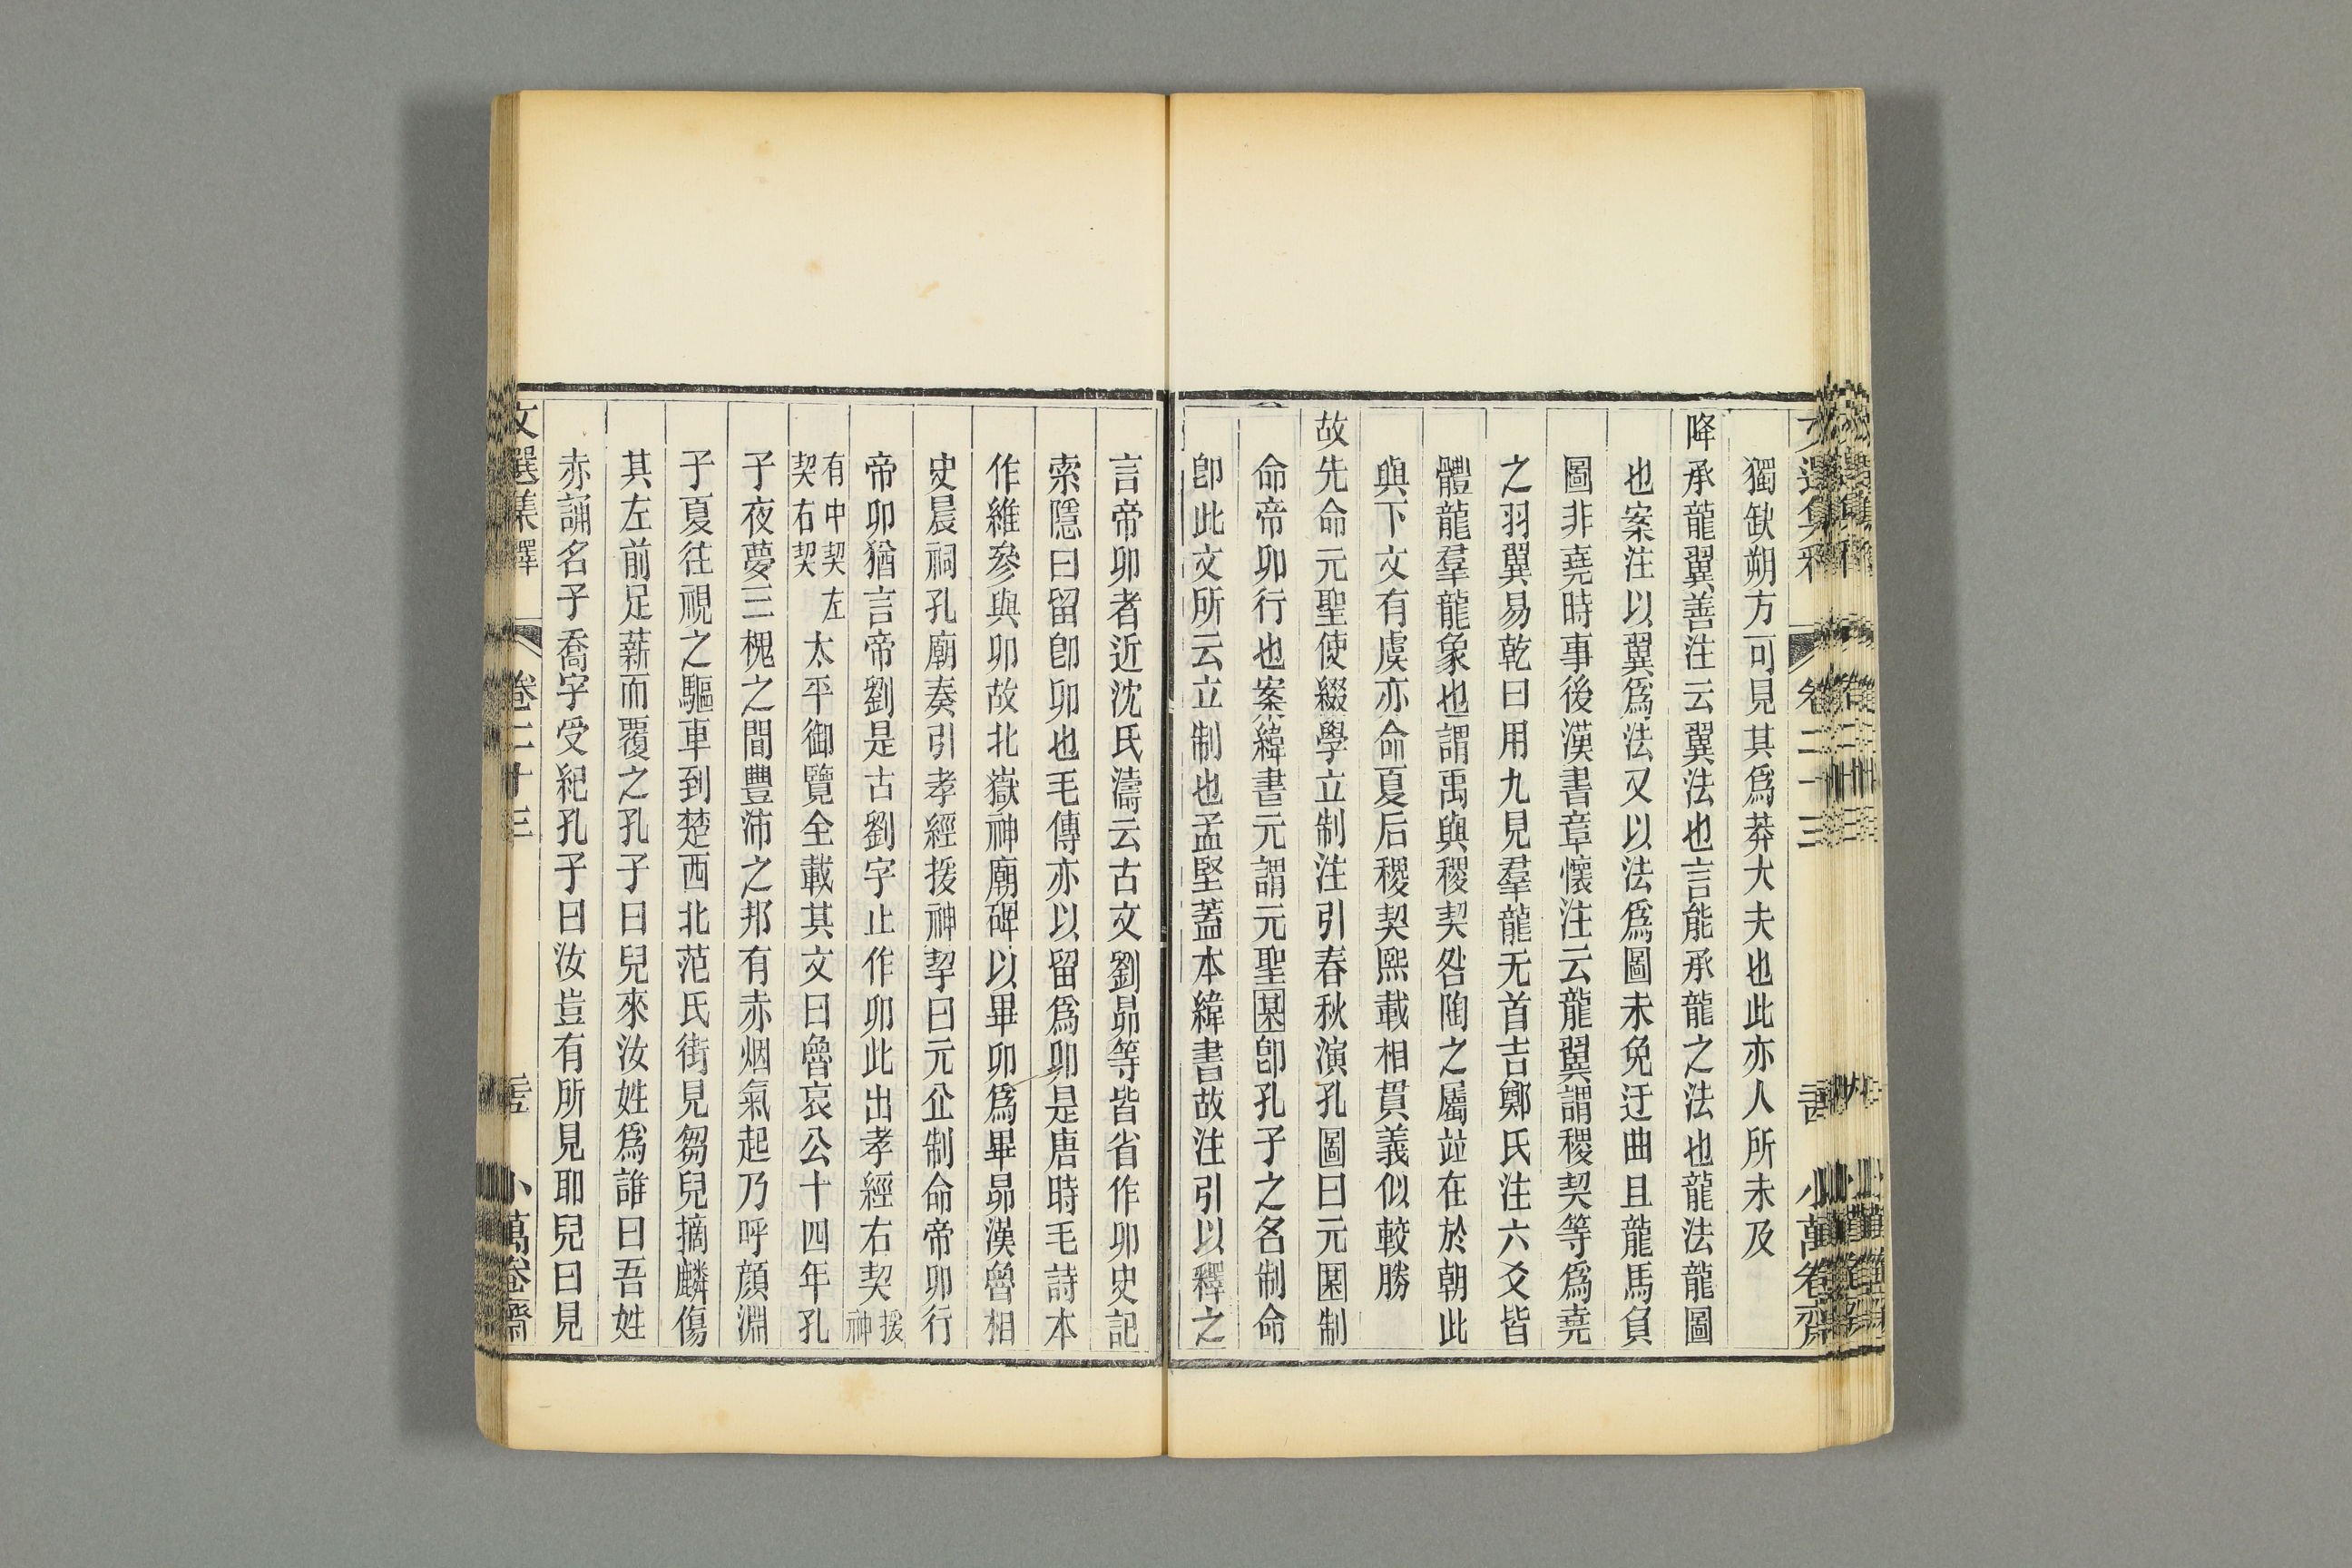 獨缺朔方可見其爲莽大夫也此亦人所未及
降承龍翼善注云翼法也言能承龍之法也龍法龍圖
也案注以翼爲法又以法爲圖未免迂曲且龍馬負
圖非堯時事後漢書章懷注云龍翼謂稷契等爲堯
之羽翼易乾曰用九見羣龍无首吉鄭氏注六爻皆
體龍羣龍象也謂禹與稷契咎陶之屬竝在於朝此
與下文有虞亦命夏后稷契熙載相貫義似較勝
故先命元聖使綴學立制注引春秋演孔圖曰元圂制
命帝卯行也案緯書元謂元聖某卽孔子之名制命
卽此文所云立制也孟堅蓋本緯書故注引以釋之
言帝卯者近沈氏濤云古文劉昴等皆省作卯史記
索隱曰留卽卯也毛傳亦以留爲卯是唐時毛詩本
作維參與卯故北嶽神廟碑以畢卯爲畢昴漢魯相
史晨祠孔廟奏引孝經援神挈曰元丘制命帝卯行
帝卯猶言帝劉是古劉字止作卯此出孝經右契援神
有中契左契右契太平御覽全載其文曰魯哀公十四年孔
子夜夢三槐之間豐沛之邦有赤烟氣起乃呼顔淵
子夏往視之驅車到楚西北范氏街見芻兒摘麟傷
其左前足薪而覆之孔子曰兒來汝姓爲誰曰吾姓
赤誦名子喬字受紀孔子曰汝豈有所見耶兒曰見
文選集釋 卷二十三 小萬卷齋